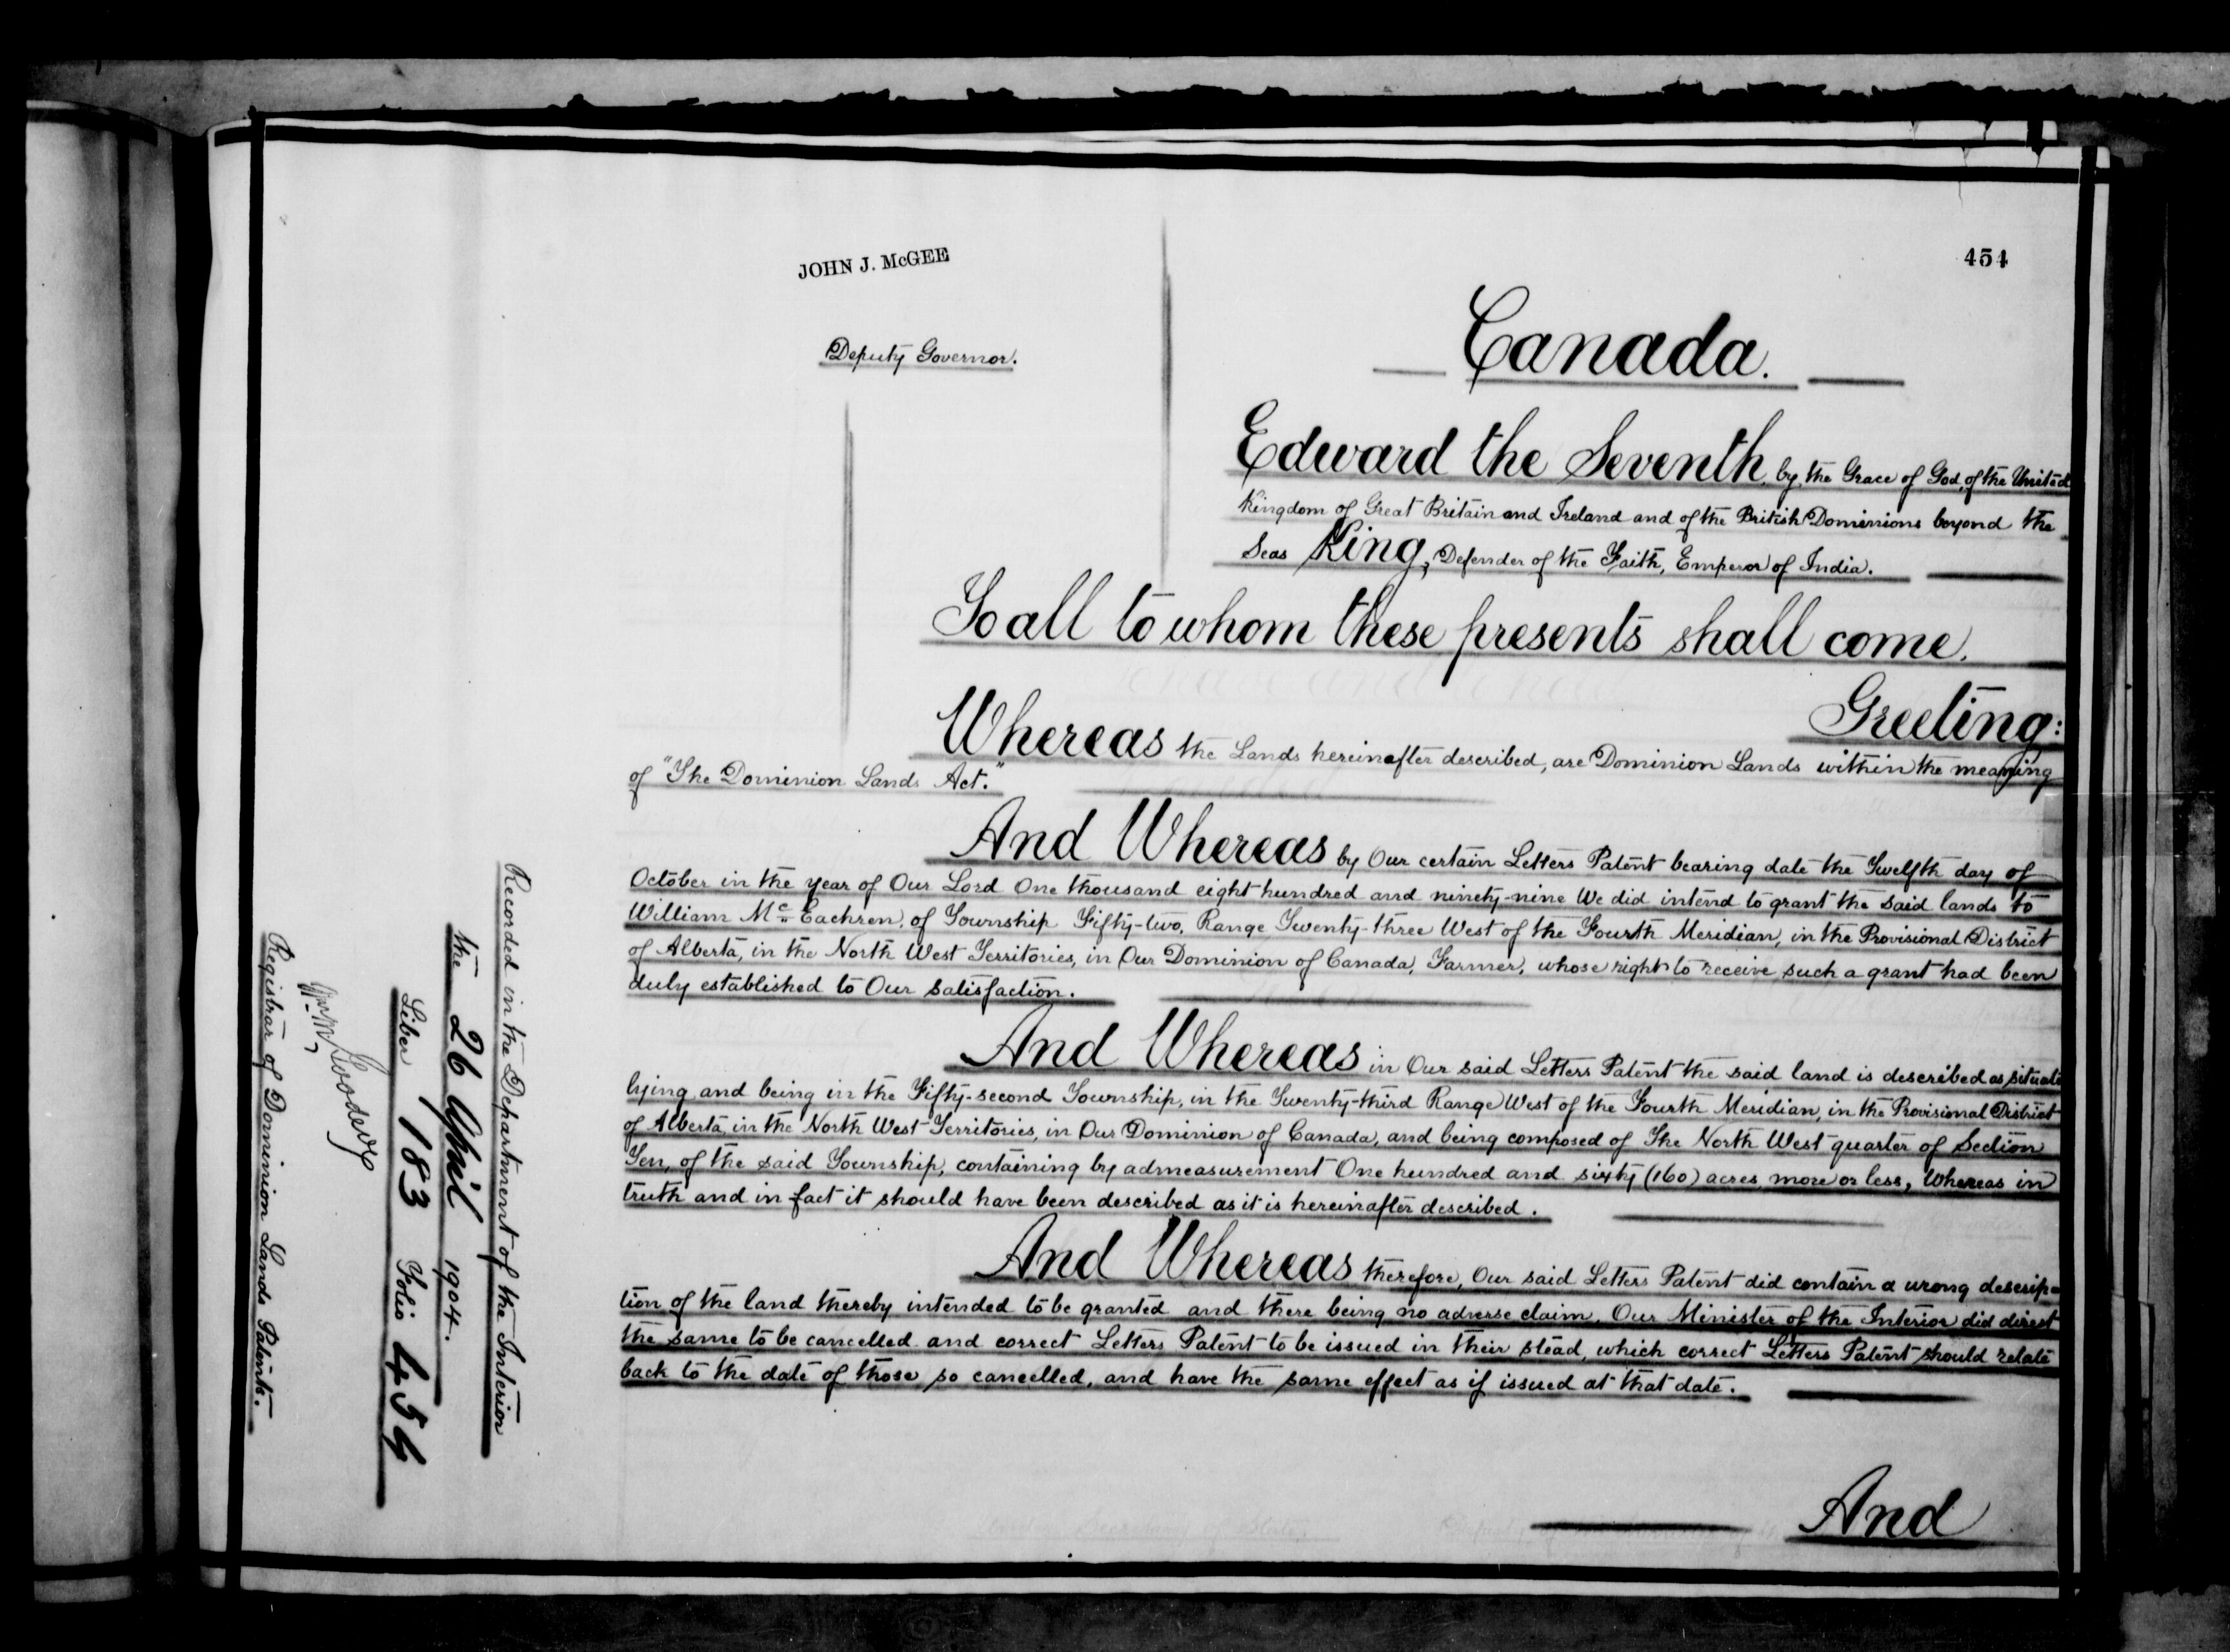 454
JOHN J. McGEE
Deputy Governor.
Canada.
Edward the Seventh, by the Grace of God, of the United
Kingdom of Great Britain and Ireland and of the British Dominions beyond the
Seas King, Defender of the Faith, Emperor of India.
To all to whom these presents shall come.
Greeting:
Whereas the Lands hereinafter described, are Dominion Lands within the meaning
of "The Dominion Lands Act."
And Whereas by Our certain Letters Patent bearing date the Twelfth day of
October in the year of Our Lord One thousand eight hundred and ninety-nine We did intend to grant the said lands to
William Mc Eachren, of Township Fifty-two, Range Twenty-three West of the Fourth Meridian, in the Provisional District
of Alberta, in the North West Territories, in Our Dominion of Canada, Farmer, whose right to receive such a grant had been
duly established to Our satisfaction.
And Whereas in Our said Letters Patent the said land is described as situate
lying and being in the Fifty-second Township, in the Twenty-third Range West of the Fourth Meridian, in the Provisional District
of Alberta, in the North West Territories, in Our Dominion of Canada, and being composed of The North West quarter of Section
Ten, of the said Township, containing by admeasurement One hundred and sixty (160) acres, more or less, Whereas in
truth and in fact it should have been described as it is hereinafter described.
And Whereas therefore, Our said Letters Patent did contain a wrong descrip=
tion of the land thereby intended to be granted and there being no adverse claim, Our Minister of the Interior did direct
the same to be cancelled and correct Letters Patent to be issued in their stead, which correct Letters Patent should relate
back to the date of those so cancelled, and have the same effect as if issued at that date.
And
Recorded in the Department of the Interior
the 26 April 1904.
Liber 183 Folio 454
Registrar of Dominion Lands Patents.